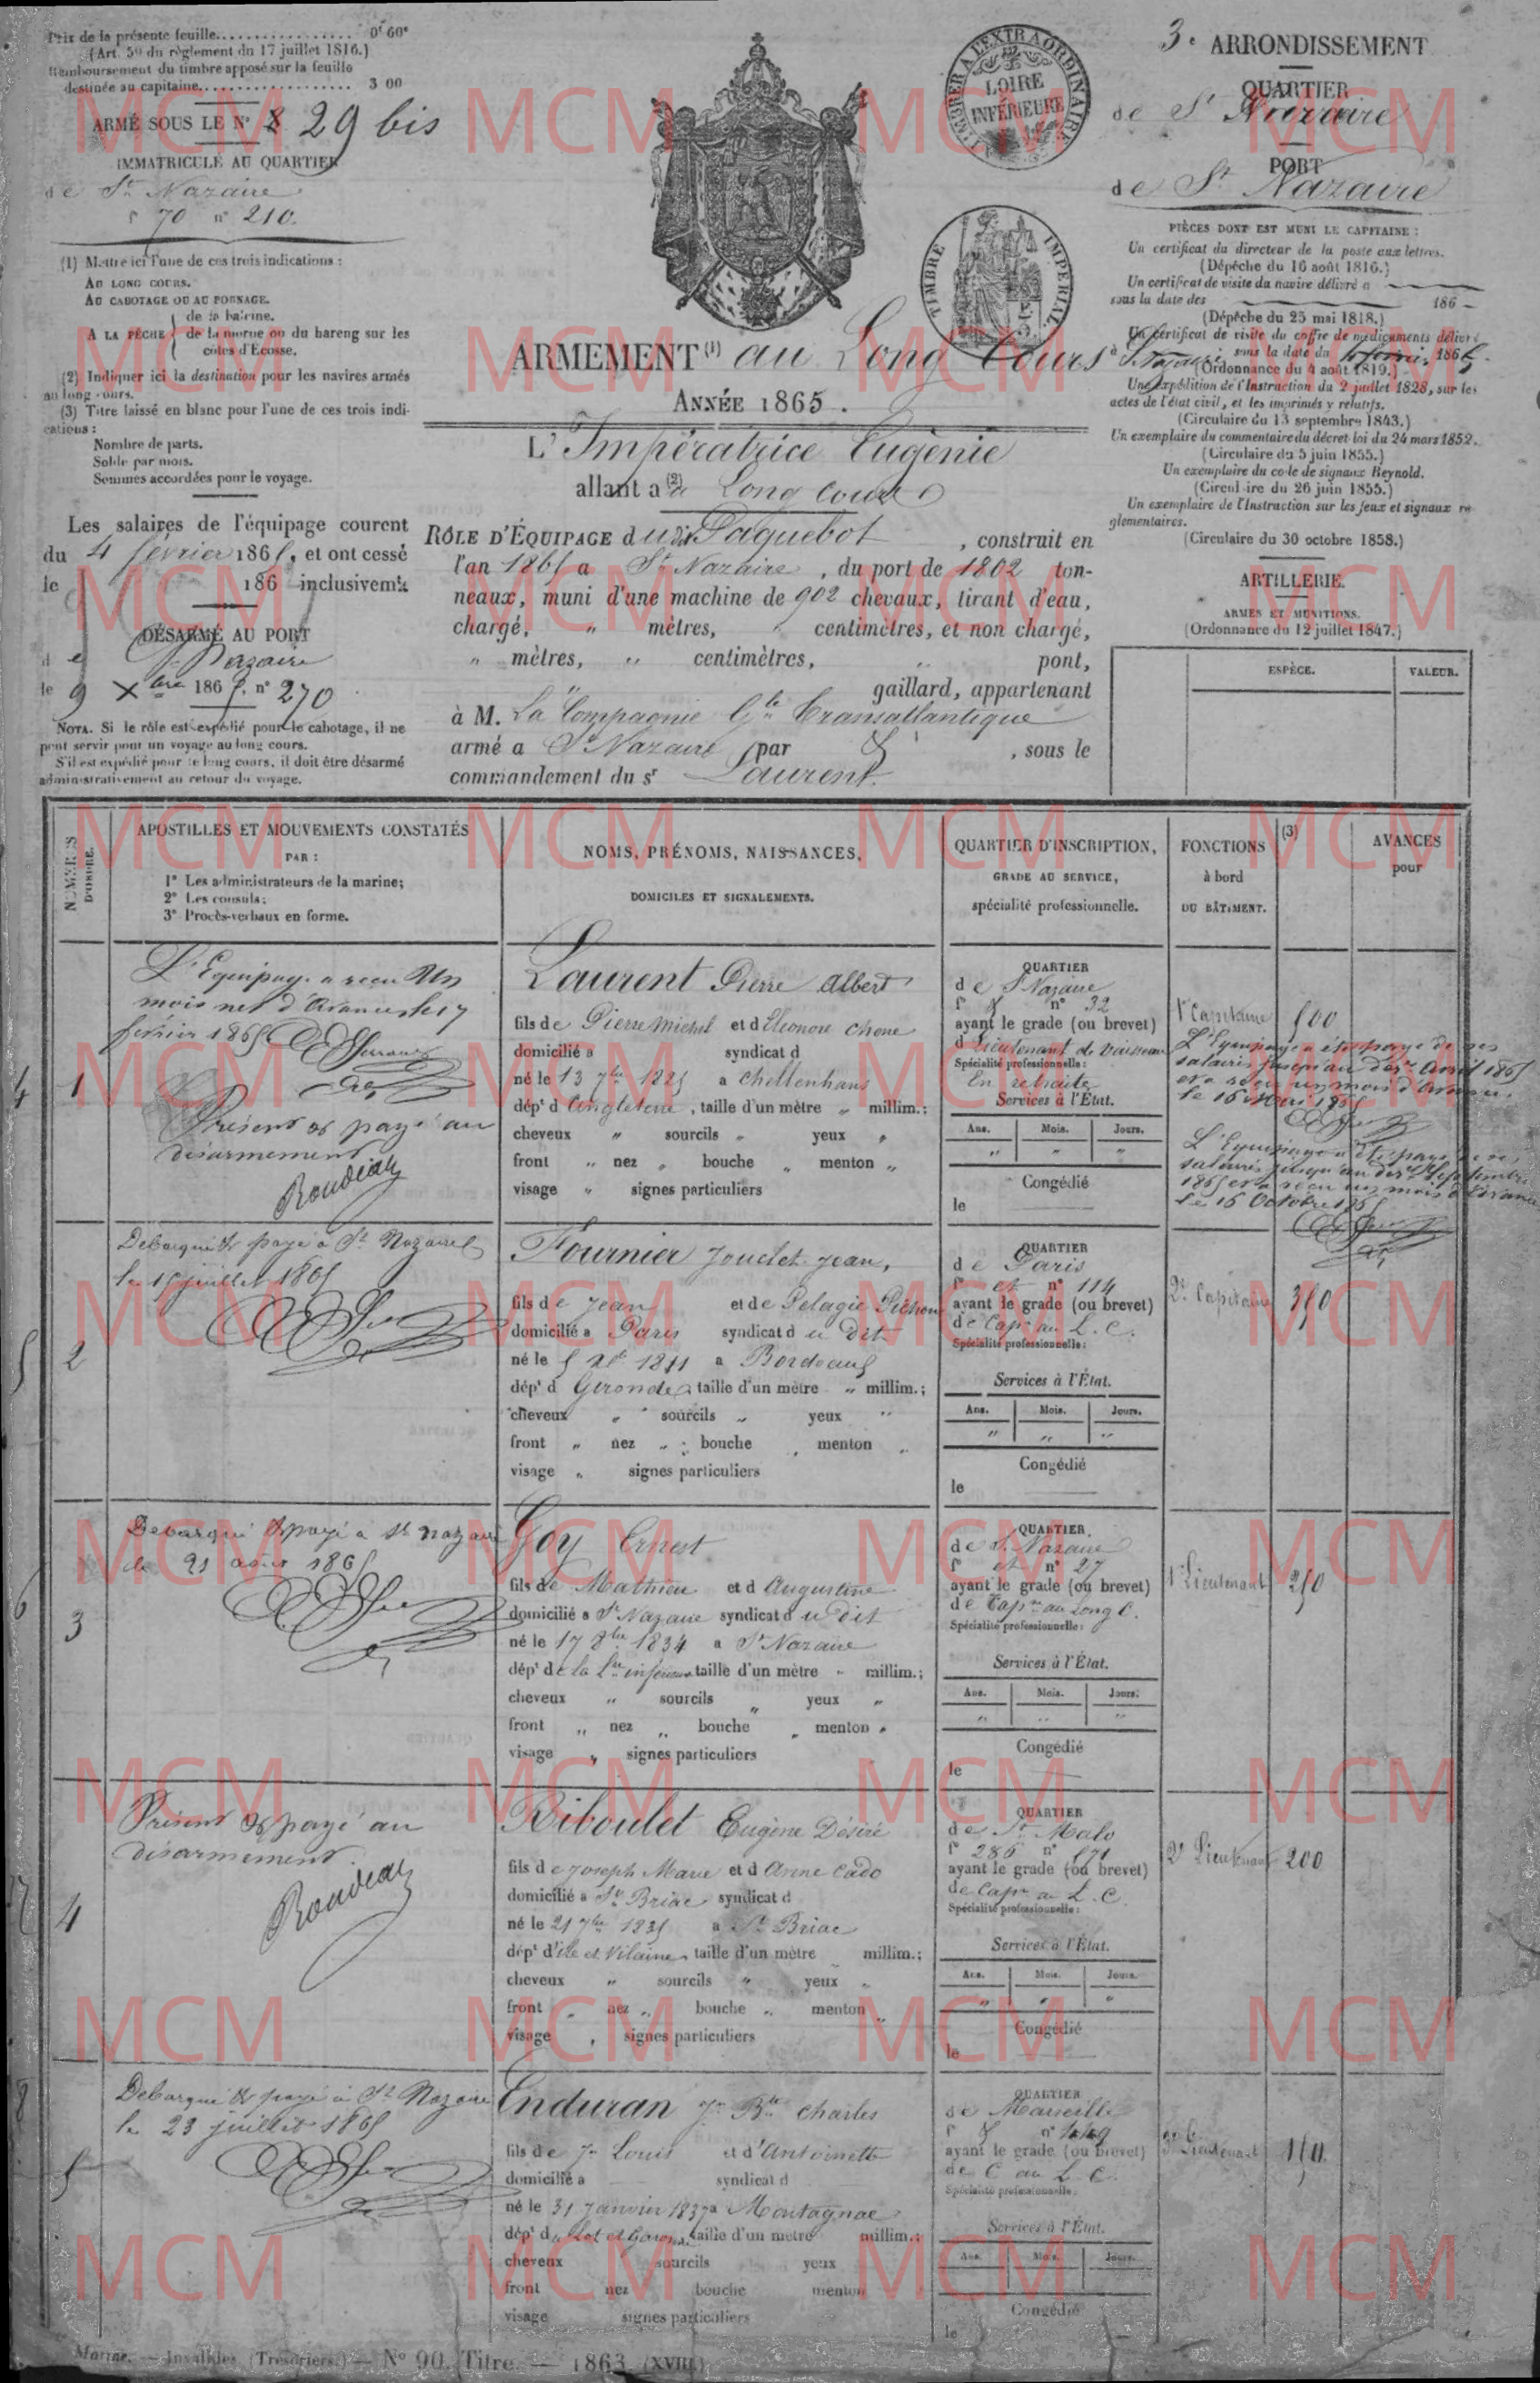 Prix de la présente feuille................. 0f 60c
(Art. 59 du règlement du 17 juillet 1816.)
Remboursement du timbre apposé sur la feuille
destinée au capitaine................... 3 00
ARMÉ SOUS LE N° 29 bis
IMMATRICULÉ AU QUARTIER
de St Nazaire
f° 70 n° 210.
(1) Mettre ici l'une de ces trois indications :
AU LONG COURS.
AU CABOTAGE OU AU BORNAGE.
A LA PÊCHE
de la baleine.
de la morue ou du hareng sur les
côtes d'Écosse.
(2) Indiquer ici la destination pour les navires armés
au long-cours.
(3) Titre laissé en blanc pour l'une de ces trois indi-
cations :
Nombre de parts.
Solde par mois.
Sommes accordées pour le voyage.
Les salaires de l'équipage courent
du 4 février 1865, et ont cessé
le 186 inclusivemt.
DÉSARMÉ AU PORT
de St Nazaire
le 9 Xbre 1865. n° 270
NOTA. Si le rôle est expédié pour le cabotage, il ne
peut servir pour un voyage au long cours.
S'il est expédié pour le long cours, il doit être désarmé
administrativement au retour du voyage.
TIMBRE A L'EXTRAORDINAIRE
LOIRE
INFÉRIEURE
TIMBRE IMPÉRIAL
ARMEMENT (1) au Long Cours
ANNÉE 1865.
L'Impératrice Eugénie
allant a (2) Long cours
RÔLE D'ÉQUIPAGE du dit Paquebot, construit en
l'an 1865 a St Nazaire, du port de 1802 ton-
neaux, muni d'une machine de 902 chevaux, tirant d'eau,
chargé, " mètres, " centimètres, et non chargé,
" mètres, " centimètres, " pont,
" gaillard, appartenant
à M. La Compagnie Gle Transatlantique
armé a St Nazaire par , sous le
commandement du sr Laurent.
3e ARRONDISSEMENT
QUARTIER
de St Nazaire
PORT
de St Nazaire
PIÈCES DONT EST MUNI LE CAPITAINE :
Un certificat du directeur de la poste aux lettres.
(Dépêche du 16 août 1816.)
Un certificat de visite du navire délivré a
sous la date des 186
(Dépêche du 25 mai 1818.)
Un certificat de visite du coffre de médicaments délivré
à St Nazaire, sous la date du 1865.
(Ordonnance du 4 août 1819.)
Une expédition de l'Instruction du 2 juillet 1828, sur les
actes de l'état civil, et les imprimés y relatifs.
(Circulaire du 13 septembre 1843.)
Un exemplaire du commentaire du décret-loi du 24 mars 1852.
(Circulaire du 5 juin 1855.)
Un exemplaire du code de signaux Reynold.
(Circulaire du 26 juin 1855.)
Un exemplaire de l'Instruction sur les feux et signaux ré-
glementaires.
(Circulaire du 30 octobre 1858.)
ARTILLERIE.
ARMES ET MUNITIONS.
(Ordonnance du 12 juillet 1847.)
ESPÈCE. VALEUR.
NUMÉROS D'ORDRE.
APOSTILLES ET MOUVEMENTS CONSTATÉS
PAR :
1° Les administrateurs de la marine;
2° Les consuls;
3° Procès-verbaux en forme.
NOMS, PRÉNOMS, NAISSANCES,
DOMICILES ET SIGNALEMENTS.
QUARTIER D'INSCRIPTION,
GRADE AU SERVICE,
spécialité professionnelle.
FONCTIONS
à bord
DU BÂTIMENT.
(3)
AVANCES
pour
4
1
L'Équipage a reçu Un
mois net d'avances le 17
février 1865
Présent & payé au
désarmement
Roudeau
Laurent Pierre Albert
fils de Pierre Michel et d Eléonore Chone
domicilié a syndicat d
né le 13 7bre 1825 a Cheltenhans
dépt d'Angleterre, taille d'un mètre " millim.;
cheveux " sourcils " yeux "
front " nez " bouche " menton "
visage " signes particuliers
QUARTIER
de St Nazaire
f° n° 32
ayant le grade (ou brevet)
d Lieutenant de vaisseau
Spécialité professionnelle :
En retraite
Services à l'État.
Ans. Mois. Jours.
" " "
Congédié
le
1r Capitaine 500
L'Équipage a été payé de ses
salaires jusqu'au der avril 1865
et a reçu un mois d'avances
le 16 1865
L'Équipage a été payé de ses
salaires jusqu'au der Septembre
1865 et a reçu un mois d'avances
le 16 Octobre 1865
5
2
Débarqué & payé à St Nazaire
le 15 juillet 1865
Fournier Jouclet Jean,
fils de Jean et de Pelagie Pichon
domicilié a Paris syndicat du dit
né le 5 1811 a Bordeaux
dépt d Gironde, taille d'un mètre " millim.;
cheveux " sourcils " yeux "
front " nez " bouche " menton "
visage " signes particuliers
QUARTIER
de Paris
f° et n° 114
ayant le grade (ou brevet)
de Capne au L. C.
Spécialité professionnelle :
Services à l'État.
Ans. Mois. Jours.
" " "
Congédié
le
2e Capitaine 350
6
3
Débarqué & payé à St Nazaire
le 21 août 1865
Goy Ernest
fils de Mathieu et d Augustine
domicilié a St Nazaire syndicat du dit
né le 17 8bre 1834 a St Nazaire
dépt de la Lre inférieure taille d'un mètre " millim.;
cheveux " sourcils " yeux "
front " nez " bouche " menton "
visage " signes particuliers
QUARTIER
de St Nazaire
f° et n° 27
ayant le grade (ou brevet)
de Capne au Long C.
Spécialité professionnelle :
Services à l'État.
Ans. Mois. Jours.
" " "
Congédié
le
1r Lieutenant 250
7
4
Présent & payé au
désarmement
Roudeau
Riboulet Eugène Désiré
fils de Joseph Marie et d Anne Cado
domicilié a St Briac syndicat d
né le 21 7bre 1835 a St Briac
dépt d'ile et Vilaine, taille d'un mètre millim.;
cheveux " sourcils " yeux "
front " nez " bouche " menton "
visage " signes particuliers
QUARTIER
de St Malo
f° 286 n° 571
ayant le grade (ou brevet)
de Capne au L. C.
Spécialité professionnelle :
Services à l'État.
Ans. Mois. Jours.
" " "
Congédié
le
2e Lieutenant 200
8
5
Débarqué & payé à St Nazaire
le 23 juillet 1865
Enduran Jn Bte Charles
fils de Jn Louis et d'Antoinette
domicilié a syndicat d
né le 31 Janvier 1837 a Montagnac
dépt du Lot et Garonne, taille d'un mètre millim.;
cheveux sourcils yeux
front nez bouche menton
visage signes particuliers
QUARTIER
de Marseille
f° n° 1449
ayant le grade (ou brevet)
de C au L. C.
Spécialité professionnelle :
Services à l'État.
Ans. Mois. Jours.
Congédié
le
3e Lieutenant 150
Marine. — Invalides (Trésoriers.) — N° 90. Titre. — 1863. (XVIII.)